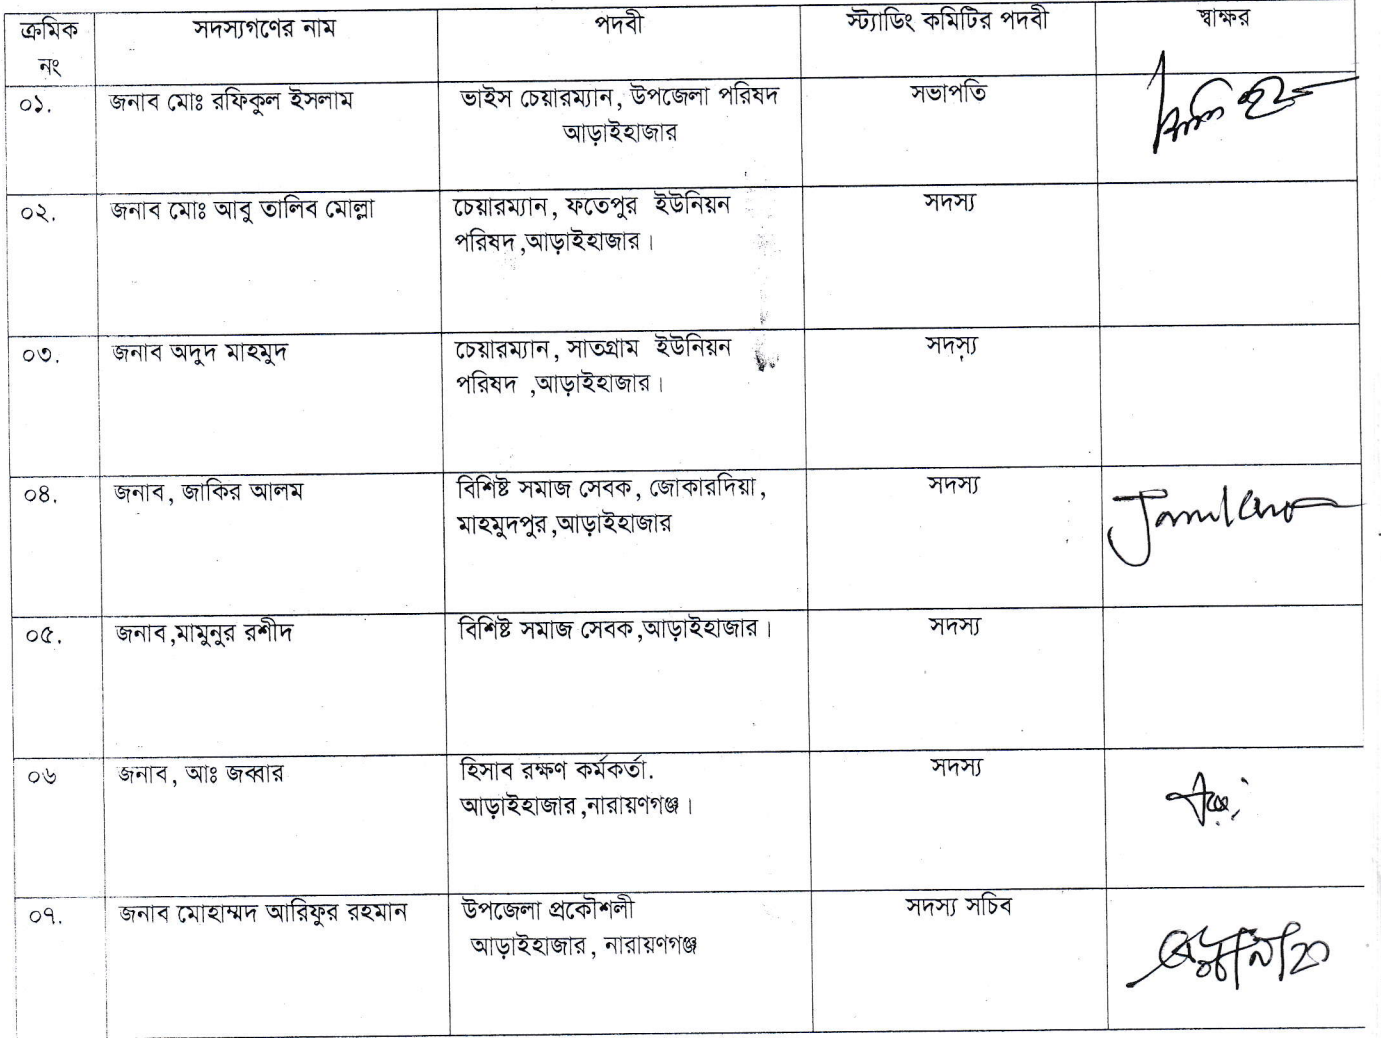 ক্রমিক নং সদস্যগণের নাম পদবী স্ট্যাডিং কমিটির পদবী স্বাক্ষর
০১. জনাব মোঃ রফিকুল ইসলাম ভাইস চেয়ারম্যান, উপজেলা পরিষদ সভাপতি
আড়াইহাজার
০২. জনাব মোঃ আবু তালিব মোল্লা চেয়ারম্যান, ফতেপুর ইউনিয়ন সদস্য
পরিষদ,আড়াইহাজার।
০৩. জনাব অদুদ মাহমুদ চেয়ারম্যান, সাতগ্রাম ইউনিয়ন সদস্য
পরিষদ ,আড়াইহাজার।
০৪. জনাব, জাকির আলম বিশিষ্ট সমাজ সেবক, জোকারদিয়া, সদস্য
মাহমুদপুর,আড়াইহাজার
০৫. জনাব,মামুনুর রশীদ বিশিষ্ট সমাজ সেবক,আড়াইহাজার। সদস্য
০৬ জনাব, আঃ জব্বার হিসাব রক্ষণ কর্মকর্তা. সদস্য
আড়াইহাজার,নারায়ণগঞ্জ।
০৭. জনাব মোহাম্মদ আরিফুর রহমান উপজেলা প্রকৌশলী সদস্য সচিব
আড়াইহাজার, নারায়ণগঞ্জ